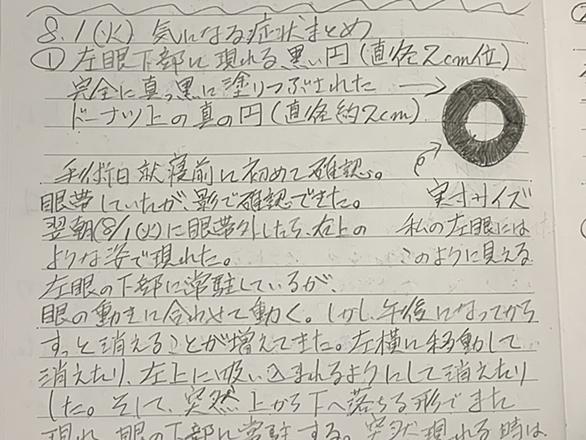 8.1(火) 気になる症状まとめ
① 左眼下部に現れる黒い円(直径2cm位)
完全に真っ黒に塗りつぶされた
ドーナツ上の真の円(直径約2cm)
手術日就寝前に初めて確認。
眼帯していたが、影で確認できた。
実寸サイズ
翌朝(8/1(火)に眼帯外したら、右上の
ような姿で現れた。
私の左眼には
このように見える
左眼の下部に常駐しているが、
眼の動きに合わせて動く。しかし、午後になってから
すっと消えることが増えてきた。左横に移動して
消えたり、左上に吸い込まれるようにして消えたり
した。そして、突然上から下へ落ちる形でまた
現れ、眼の下部に常駐する。突然現れる時は